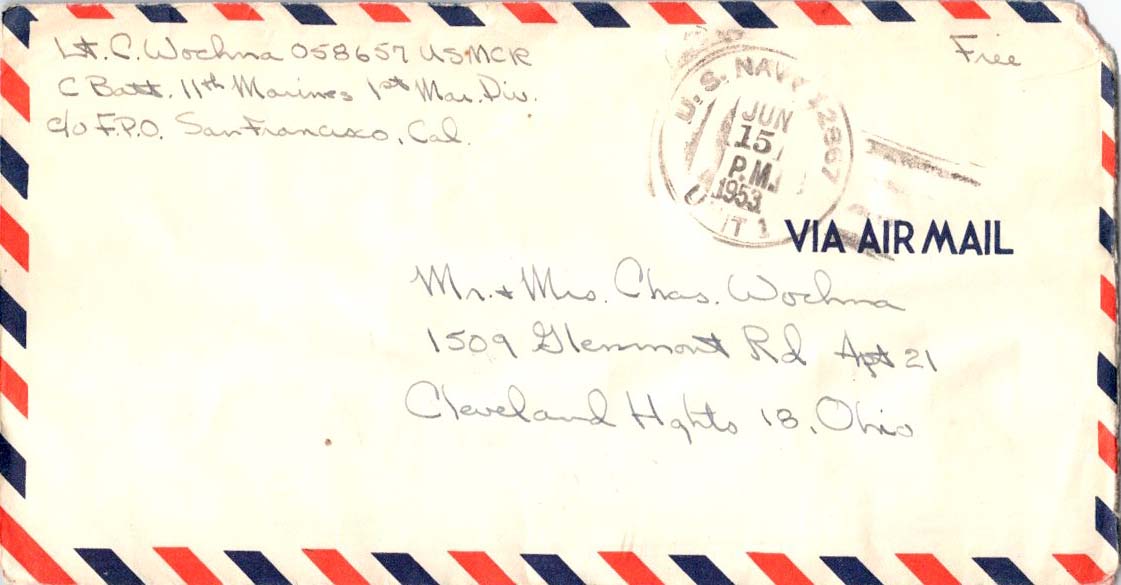 Lt. C. Wochna 058657 USMCR
C Batt. 11th Marines 1st Mar. Div.
c/o F.P.O. San Francisco, Cal.
Free
U.S. NAVY 12867
JUN
15
P.M.
1953
UNIT 1
VIA AIR MAIL
Mr. + Mrs. Chas. Wochna
1509 Glenmont Rd Apt 21
Cleveland Hghts 18, Ohio